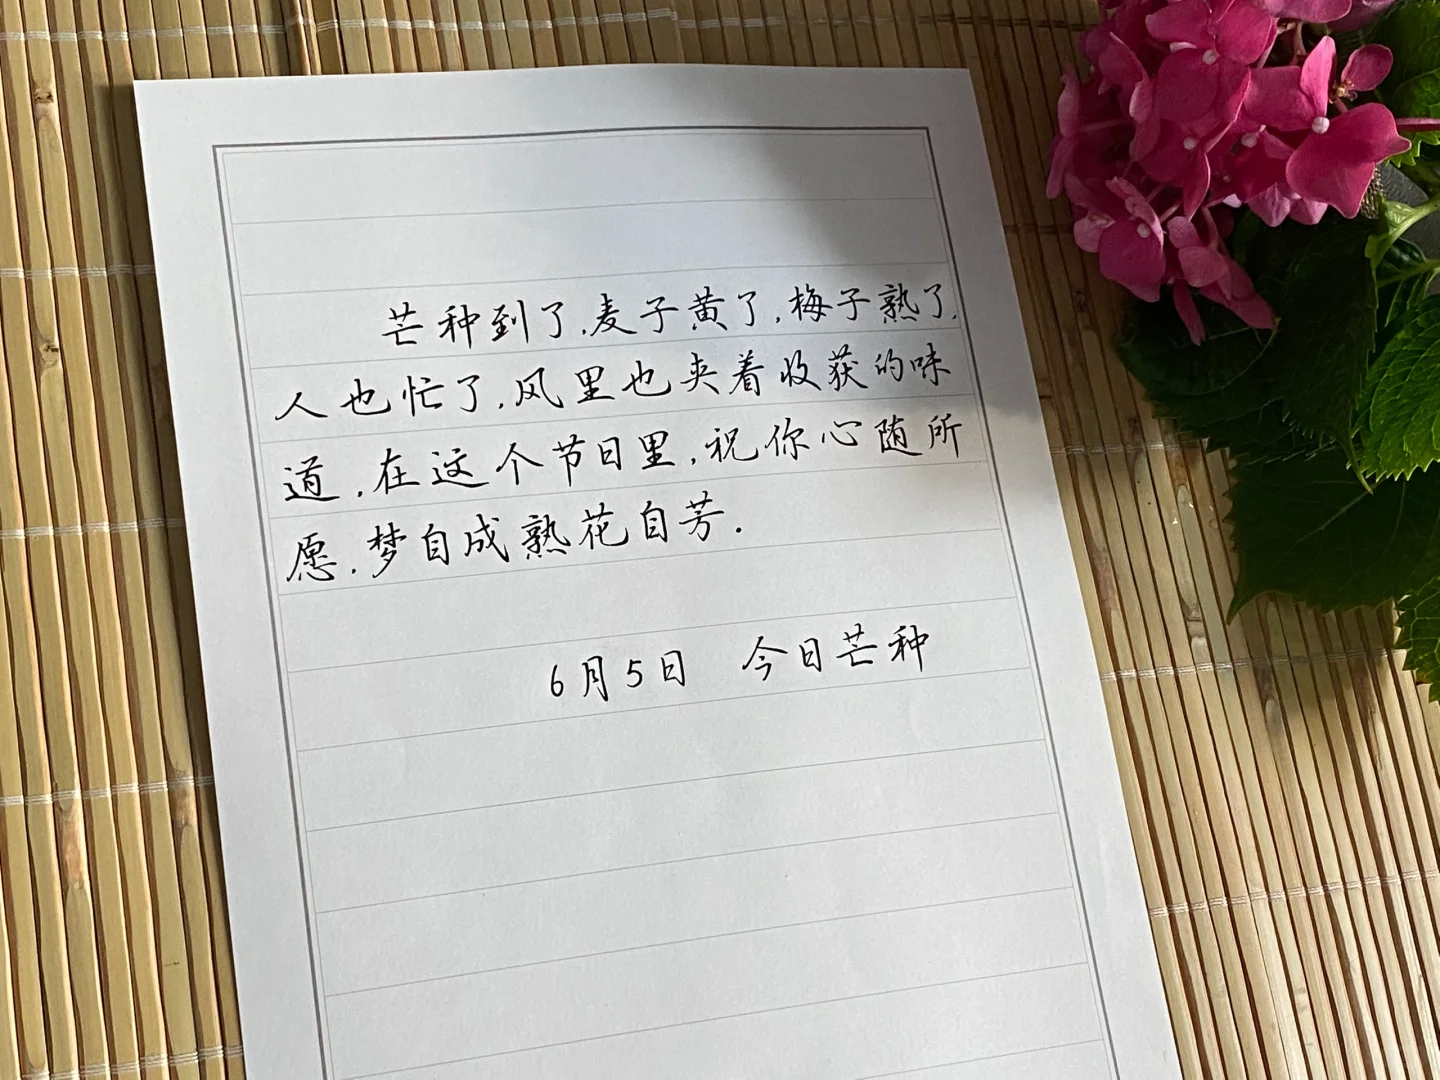 芒种到了,麦子黄了,梅子熟了,
人也忙了,风里也夹着收获的味
道,在这个节日里,祝你心随所
愿,梦自成熟花自芳.
6月5日 今日芒种